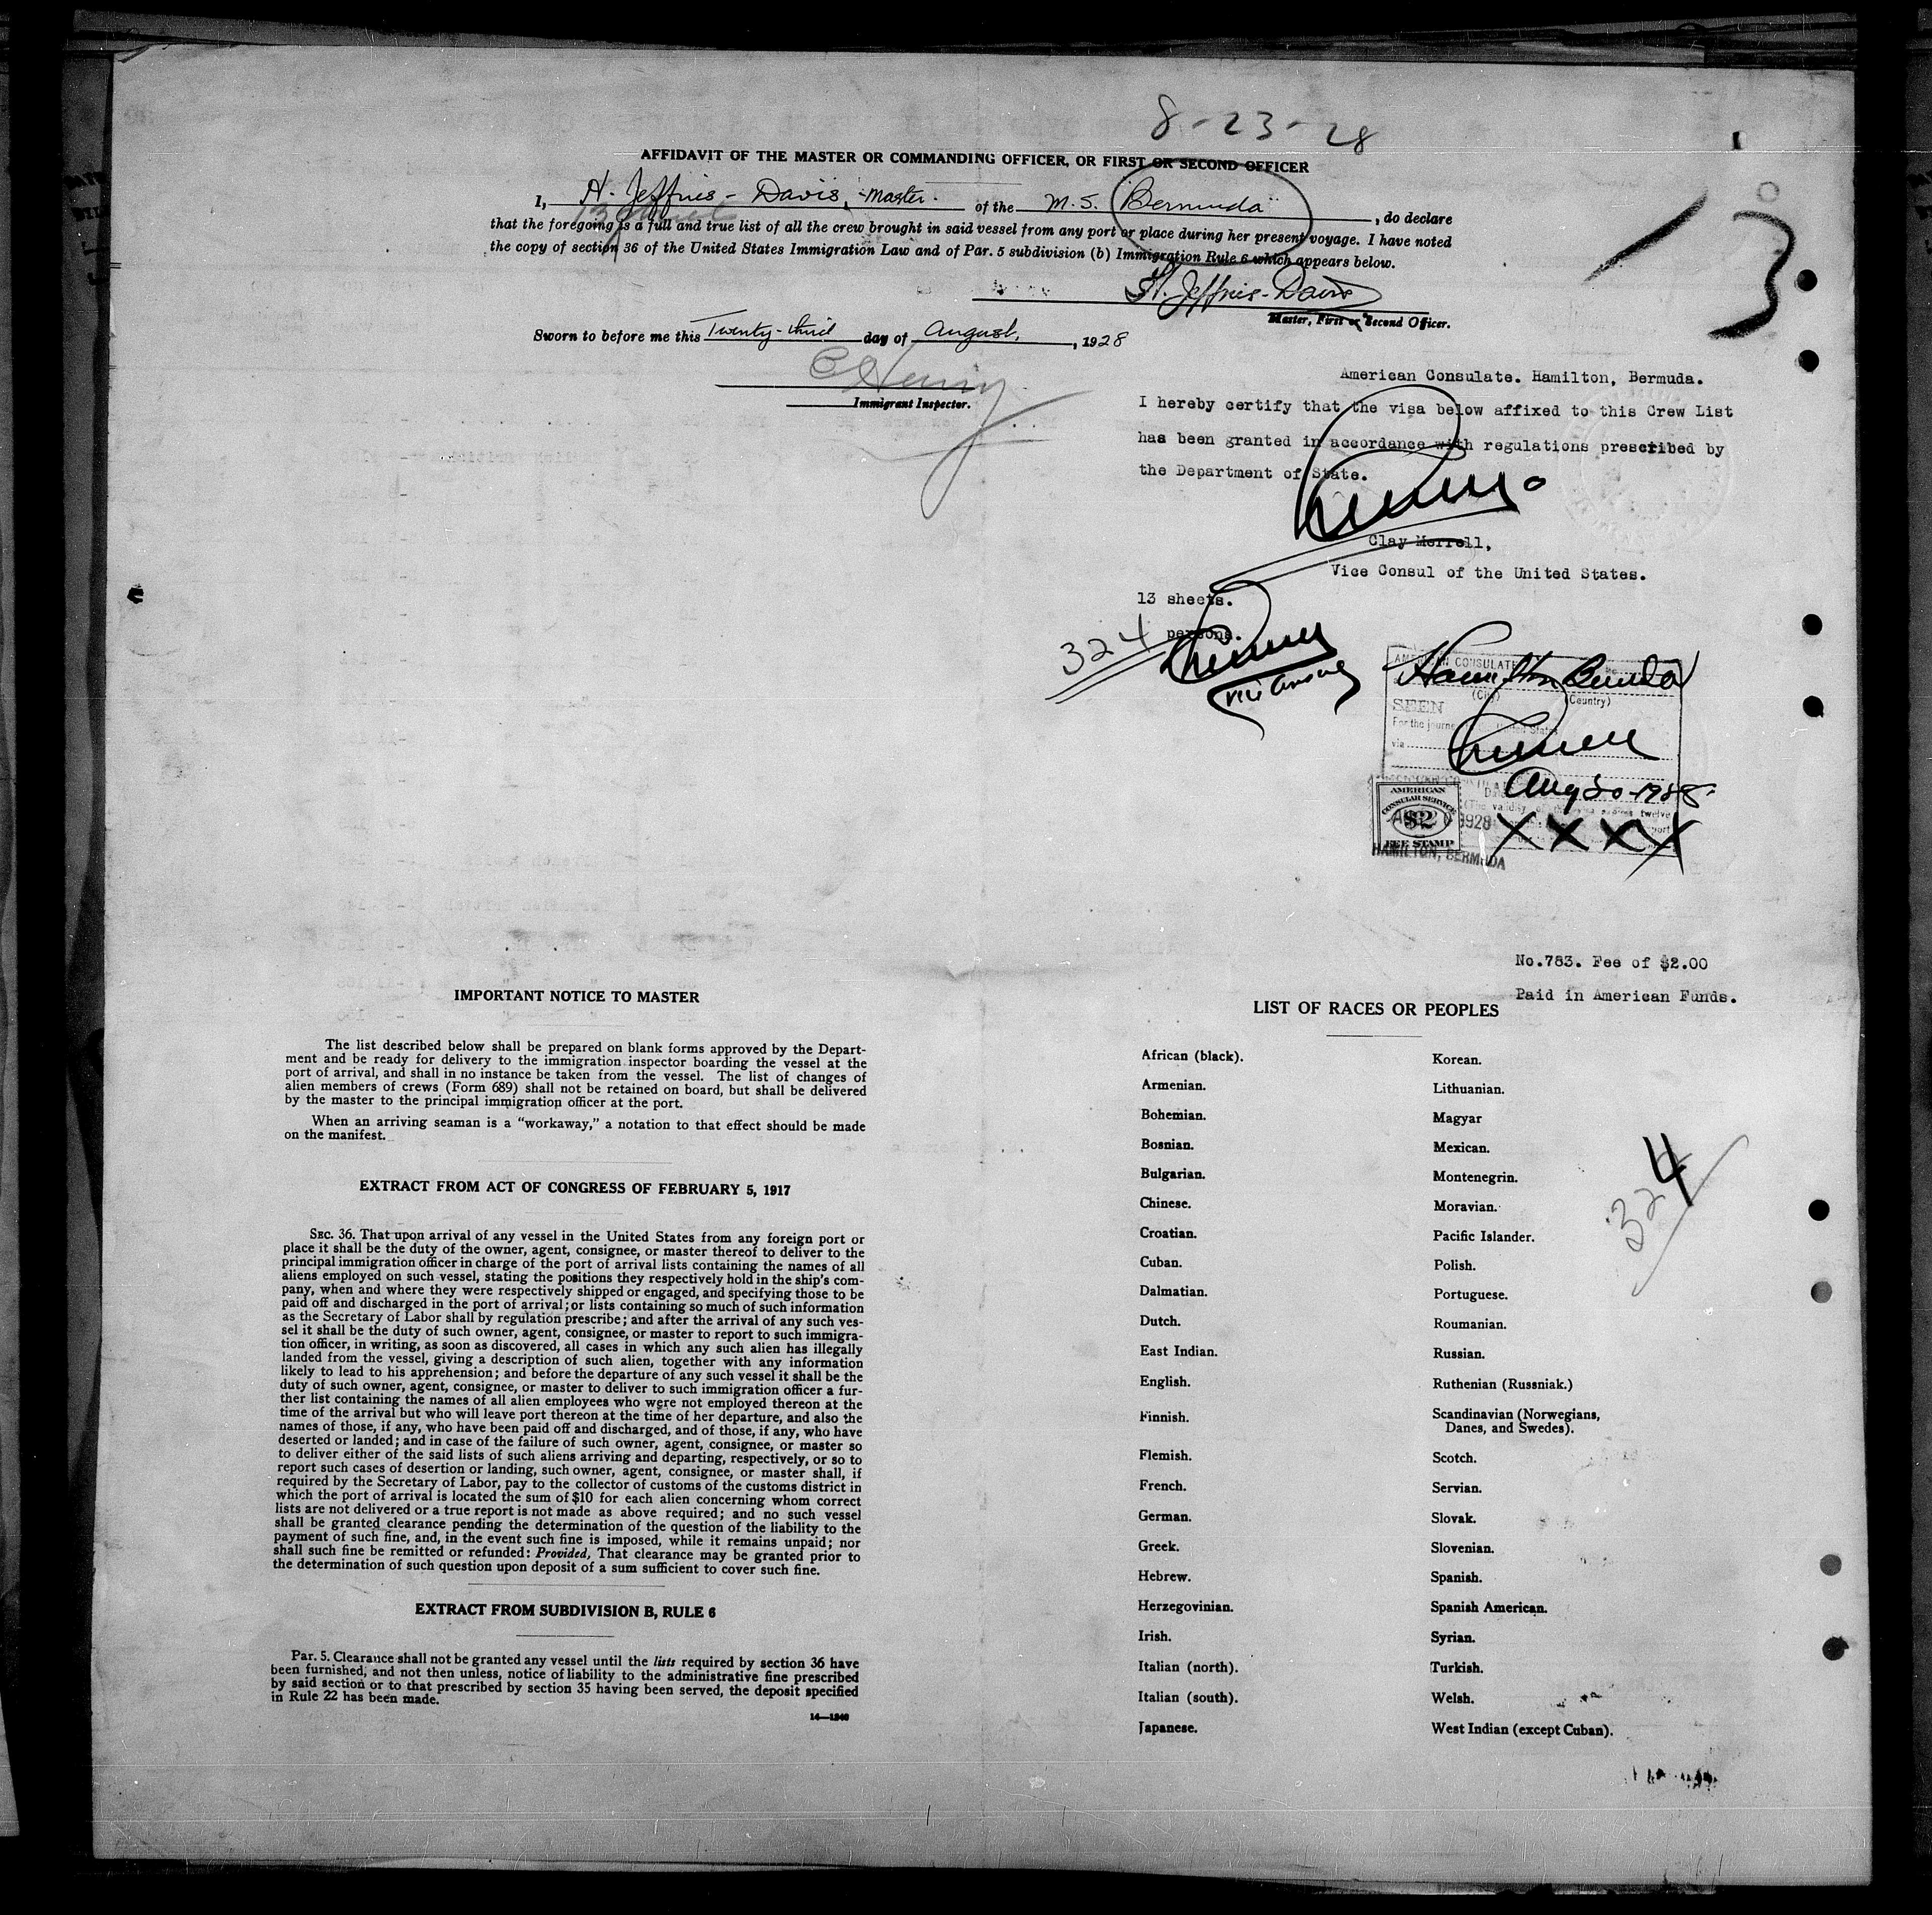 8-23-28
AFFIDAVIT OF THE MASTER OR COMMANDING OFFICER, OR FIRST OR SECOND OFFICER
I, H. Jeffries-Davis, -Master. of the M.S. "Bermuda", do declare
13 sheet
that the foregoing is a full and true list of all the crew brought in said vessel from any port or place during her present voyage. I have noted
the copy of section 36 of the United States Immigration Law and of Par. 5 subdivision (b) Immigration Rule 6 which appears below.
H. Jeffries-Davis
Master, First or Second Officer.
Sworn to before me this Twenty-third day of August, , 1928
Immigrant Inspector.
13
American Consulate. Hamilton, Bermuda.
I hereby certify that the visa below affixed to this Crew List
has been granted in accordance with regulations prescribed by
the Department of State.
Clay Merrell,
Vice Consul of the United States.
13 sheets.
324 persons.
Vice Consul
AMERICAN CONSULATE
Hamilton Bermuda
(City) (Country)
SEEN
For the journey United States
via
Aug 20-1928
AMERICAN
CONSULAR SERVICE
$2
FEE STAMP
HAMILTON, BERMUDA
XXXX
No.783. Fee of $2.00
Paid in American Funds.
IMPORTANT NOTICE TO MASTER
The list described below shall be prepared on blank forms approved by the Depart-
ment and be ready for delivery to the immigration inspector boarding the vessel at the
port of arrival, and shall in no instance be taken from the vessel. The list of changes of
alien members of crews (Form 689) shall not be retained on board, but shall be delivered
by the master to the principal immigration officer at the port.
When an arriving seaman is a "workaway," a notation to that effect should be made
on the manifest.
EXTRACT FROM ACT OF CONGRESS OF FEBRUARY 5, 1917
SEC. 36. That upon arrival of any vessel in the United States from any foreign port or
place it shall be the duty of the owner, agent, consignee, or master thereof to deliver to the
principal immigration officer in charge of the port of arrival lists containing the names of all
aliens employed on such vessel, stating the positions they respectively hold in the ship's com-
pany, when and where they were respectively shipped or engaged, and specifying those to be
paid off and discharged in the port of arrival; or lists containing so much of such information
as the Secretary of Labor shall by regulation prescribe; and after the arrival of any such ves-
sel it shall be the duty of such owner, agent, consignee, or master to report to such immigra-
tion officer, in writing, as soon as discovered, all cases in which any such alien has illegally
landed from the vessel, giving a description of such alien, together with any information
likely to lead to his apprehension; and before the departure of any such vessel it shall be the
duty of such owner, agent, consignee, or master to deliver to such immigration officer a fur-
ther list containing the names of all alien employees who were not employed thereon at the
time of the arrival but who will leave port thereon at the time of her departure, and also the
names of those, if any, who have been paid off and discharged, and of those, if any, who have
deserted or landed; and in case of the failure of such owner, agent, consignee, or master so
to deliver either of the said lists of such aliens arriving and departing, respectively, or so to
report such cases of desertion or landing, such owner, agent, consignee, or master shall, if
required by the Secretary of Labor, pay to the collector of customs of the customs district in
which the port of arrival is located the sum of $10 for each alien concerning whom correct
lists are not delivered or a true report is not made as above required; and no such vessel
shall be granted clearance pending the determination of the question of the liability to the
payment of such fine, and, in the event such fine is imposed, while it remains unpaid; nor
shall such fine be remitted or refunded: Provided, That clearance may be granted prior to
the determination of such question upon deposit of a sum sufficient to cover such fine.
EXTRACT FROM SUBDIVISION B, RULE 6
Par. 5. Clearance shall not be granted any vessel until the lists required by section 36 have
been furnished, and not then unless, notice of liability to the administrative fine prescribed
by said section or to that prescribed by section 35 having been served, the deposit specified
in Rule 22 has been made.
14—1240
LIST OF RACES OR PEOPLES
African (black).
Armenian.
Bohemian.
Bosnian.
Bulgarian.
Chinese.
Croatian.
Cuban.
Dalmatian.
Dutch.
East Indian.
English.
Finnish.
Flemish.
French.
German.
Greek.
Hebrew.
Herzegovinian.
Irish.
Italian (north).
Italian (south).
Japanese.
Korean.
Lithuanian.
Magyar
Mexican.
Montenegrin.
Moravian.
Pacific Islander.
Polish.
Portuguese.
Roumanian.
Russian.
Ruthenian (Russniak.)
Scandinavian (Norwegians,
Danes, and Swedes).
Scotch.
Servian.
Slovak.
Slovenian.
Spanish.
Spanish American.
Syrian.
Turkish.
Welsh.
West Indian (except Cuban).
324